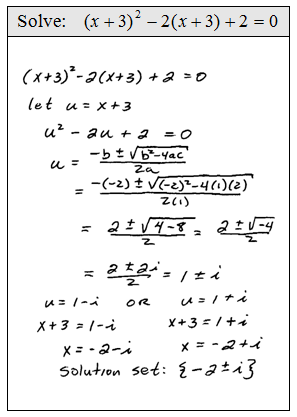 Solve: (x + 3)² − 2(x + 3) + 2 = 0
(x+3)²-2(x+3) + 2 = 0
let u = x + 3
u² - 2u + 2 = 0
u = (-b ± √(b²-4ac))/(2a)
= (-(-2) ± √((-2)²-4(1)(2)))/(2(1))
= (2 ± √(4-8))/2 = (2 ± √-4)/2
= (2 ± 2i)/2 = 1 ± i
u = 1 - i OR u = 1 + i
x + 3 = 1 - i x + 3 = 1 + i
x = -2 - i x = -2 + i
Solution set: {-2 ± i}